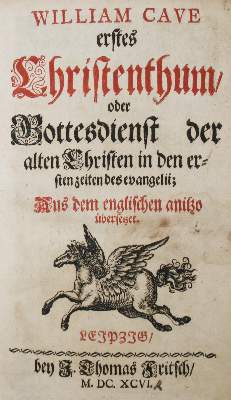 WILLIAM CAVE
erstes
Christenthum/
oder
Gottesdienst der
alten Christen in den er-
sten zeiten des evangelii;
Aus dem englischen anitzo
übersetzet.
LEIPZIG/
bey J. Thomas Fritsch/
M. DC. XCVI.